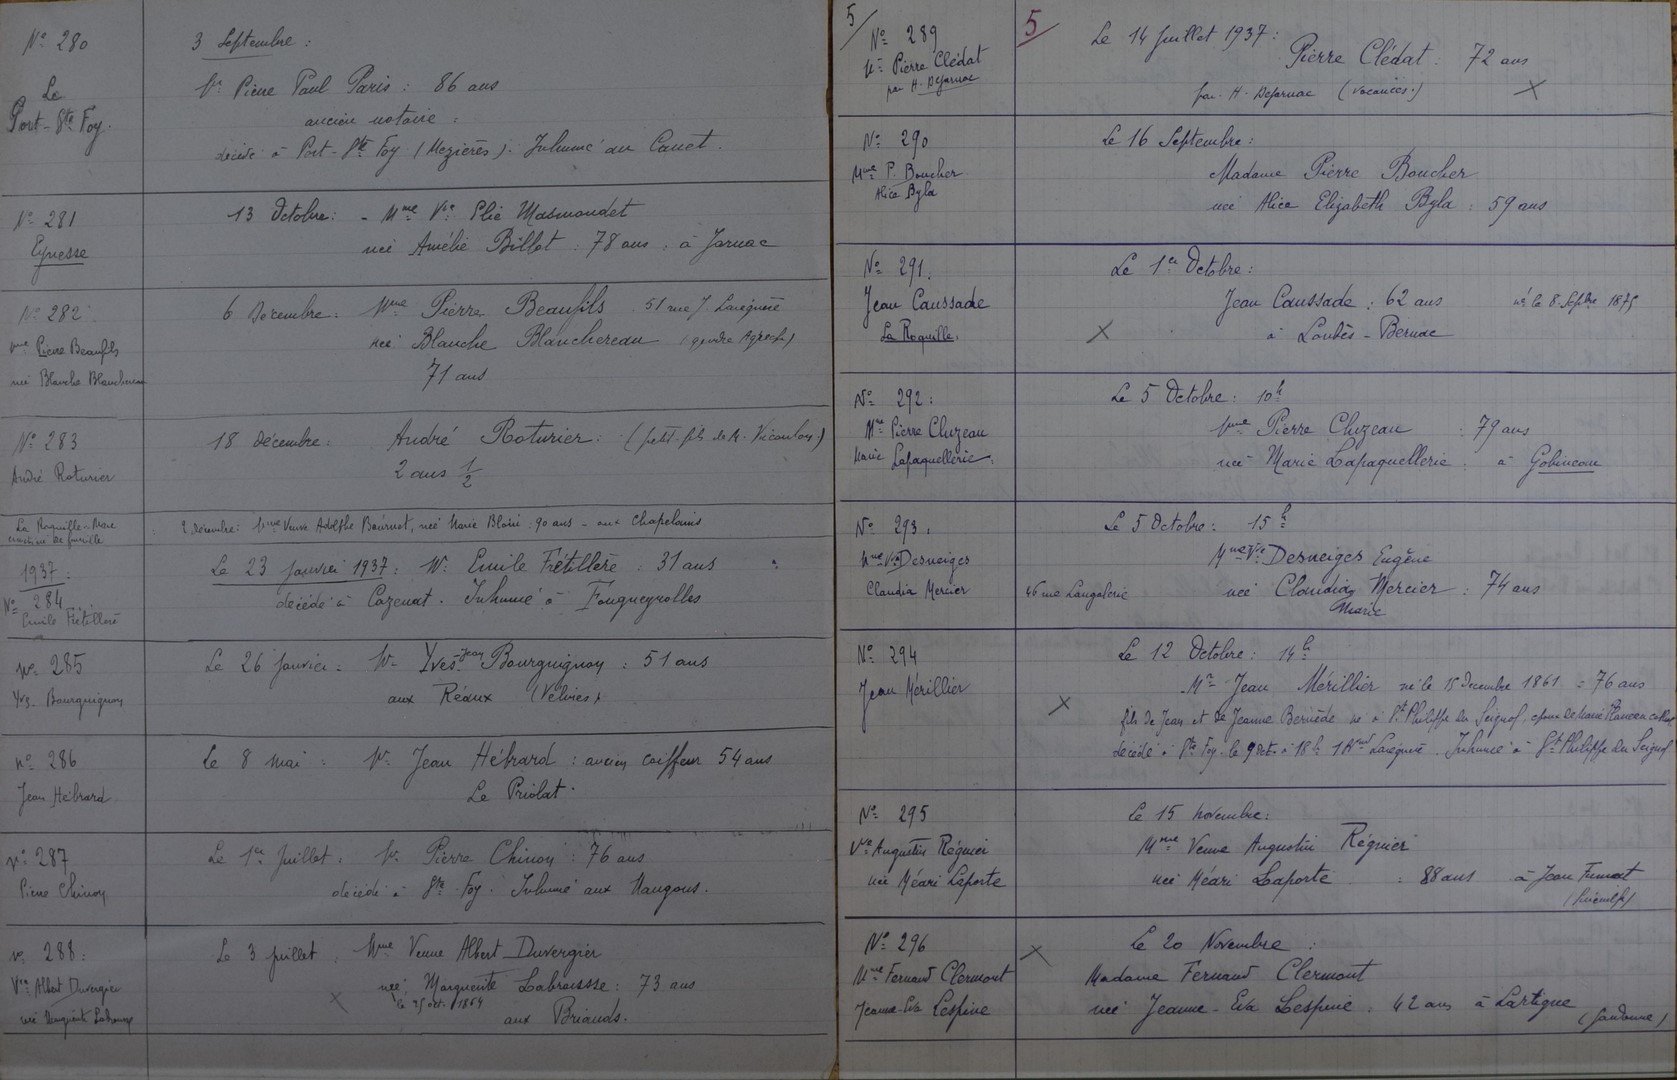 N° 280
Le
Port-Ste Foy.
3 Septembre :
Mr Pierre Paul Paris : 86 ans
ancien notaire :
décédé à Port-Ste Foy (Mézières). Inhumé au Canet.
N° 281
Eynesse
13 Octobre : - Mme Vve Elie Masmondet
née Amélie Billot : 78 ans, à Jarnac
N° 282
Mme Pierre Beaufils
née Blanche Blanchereau
6 Décembre : Mme Pierre Beaufils 51 rue J. Lareguère
née Blanche Blanchereau
71 ans
N° 283
André Roturier
18 décembre : André Roturier : (petit-fils de Mr
2 ans 1/2
La Roquille
2 Décembre : Mme Veuve Adolphe Bournet, née Marie Blouin : 90 ans - aux Chapelains
1937 :
N° 284
Emile Frétillère
Le 23 janvier 1937 : Mr Emile Frétillère : 31 ans
décédé à Cazenat. Inhumé à Fougueyrolles
N° 285
Yves Bourguignon
Le 26 janvier : Mr Yves-Jean Bourguignon : 51 ans
aux Réaux (Vélines)
N° 286
Jean Hébrard
Le 8 Mai : Mr Jean Hébrard : ancien coiffeur 54 ans
Le Priolat.
N° 287
Pierre Chinon
Le 1er Juillet : Mr Pierre Chinon : 76 ans
décédé à Ste Foy. Inhumé aux Mangons.
N° 288 :
Vve Albert Duvergier
née Marguerite Labrousse
Le 3 Juillet : Mme Veuve Albert Duvergier
née Marguerite Labrousse : 73 ans
le 25 oct. 1864
aux Briands.
5/
N° 289
Mr Pierre Clédat
par H. Dejarnac
5/
Le 14 Juillet 1937 :
Pierre Clédat : 72 ans
par H. Dejarnac (vacances.) X
N° 290
Mme P. Boucher
Alice Byla
Le 16 Septembre :
Madame Pierre Boucher
née Alice Elizabeth Byla : 59 ans
N° 291.
Jean Caussade
La Roquille.
Le 1er Octobre :
Jean Caussade : 62 ans né le 8 Septbre 1875
X à Loubès-Bernac
N° 292 :
Mme Pierre Cluzeau
Marie Lapaquellerie.
Le 5 Octobre : 10h
Mme Pierre Cluzeau : 79 ans
née Marie Lapaquellerie : à Gobineau
N° 293.
Mme Vve Desneiges
Claudia Mercier
Le 5 Octobre : 15h
Mme Vve Desneiges Eugène
46 rue Langalerie née Claudia Mercier : 74 ans
Marie
N° 294
Jean Mérillier
Le 12 Octobre : 14h
X Mr Jean Mérillier né le 15 Décembre 1861 = 76 ans
fils de Jean et de Jeanne Bernède né à St Philippe du Seignal, époux de Marie
décédé à Ste Foy le 9 oct. à 18h 1 Bd Lareguère. Inhumé à St Philippe du Seignal
N° 295
Vve Augustin Régnier
née Méari Laporte
Le 15 Novembre :
Mme Veuve Augustin Régnier
née Méari Laporte : 88 ans à Jean Fumat
N° 296
Mme Fernand Clermont
Jeanne-Eva Lespine
X Le 20 Novembre :
Madame Fernand Clermont
née Jeanne-Eva Lespine : 42 ans à Lartigue